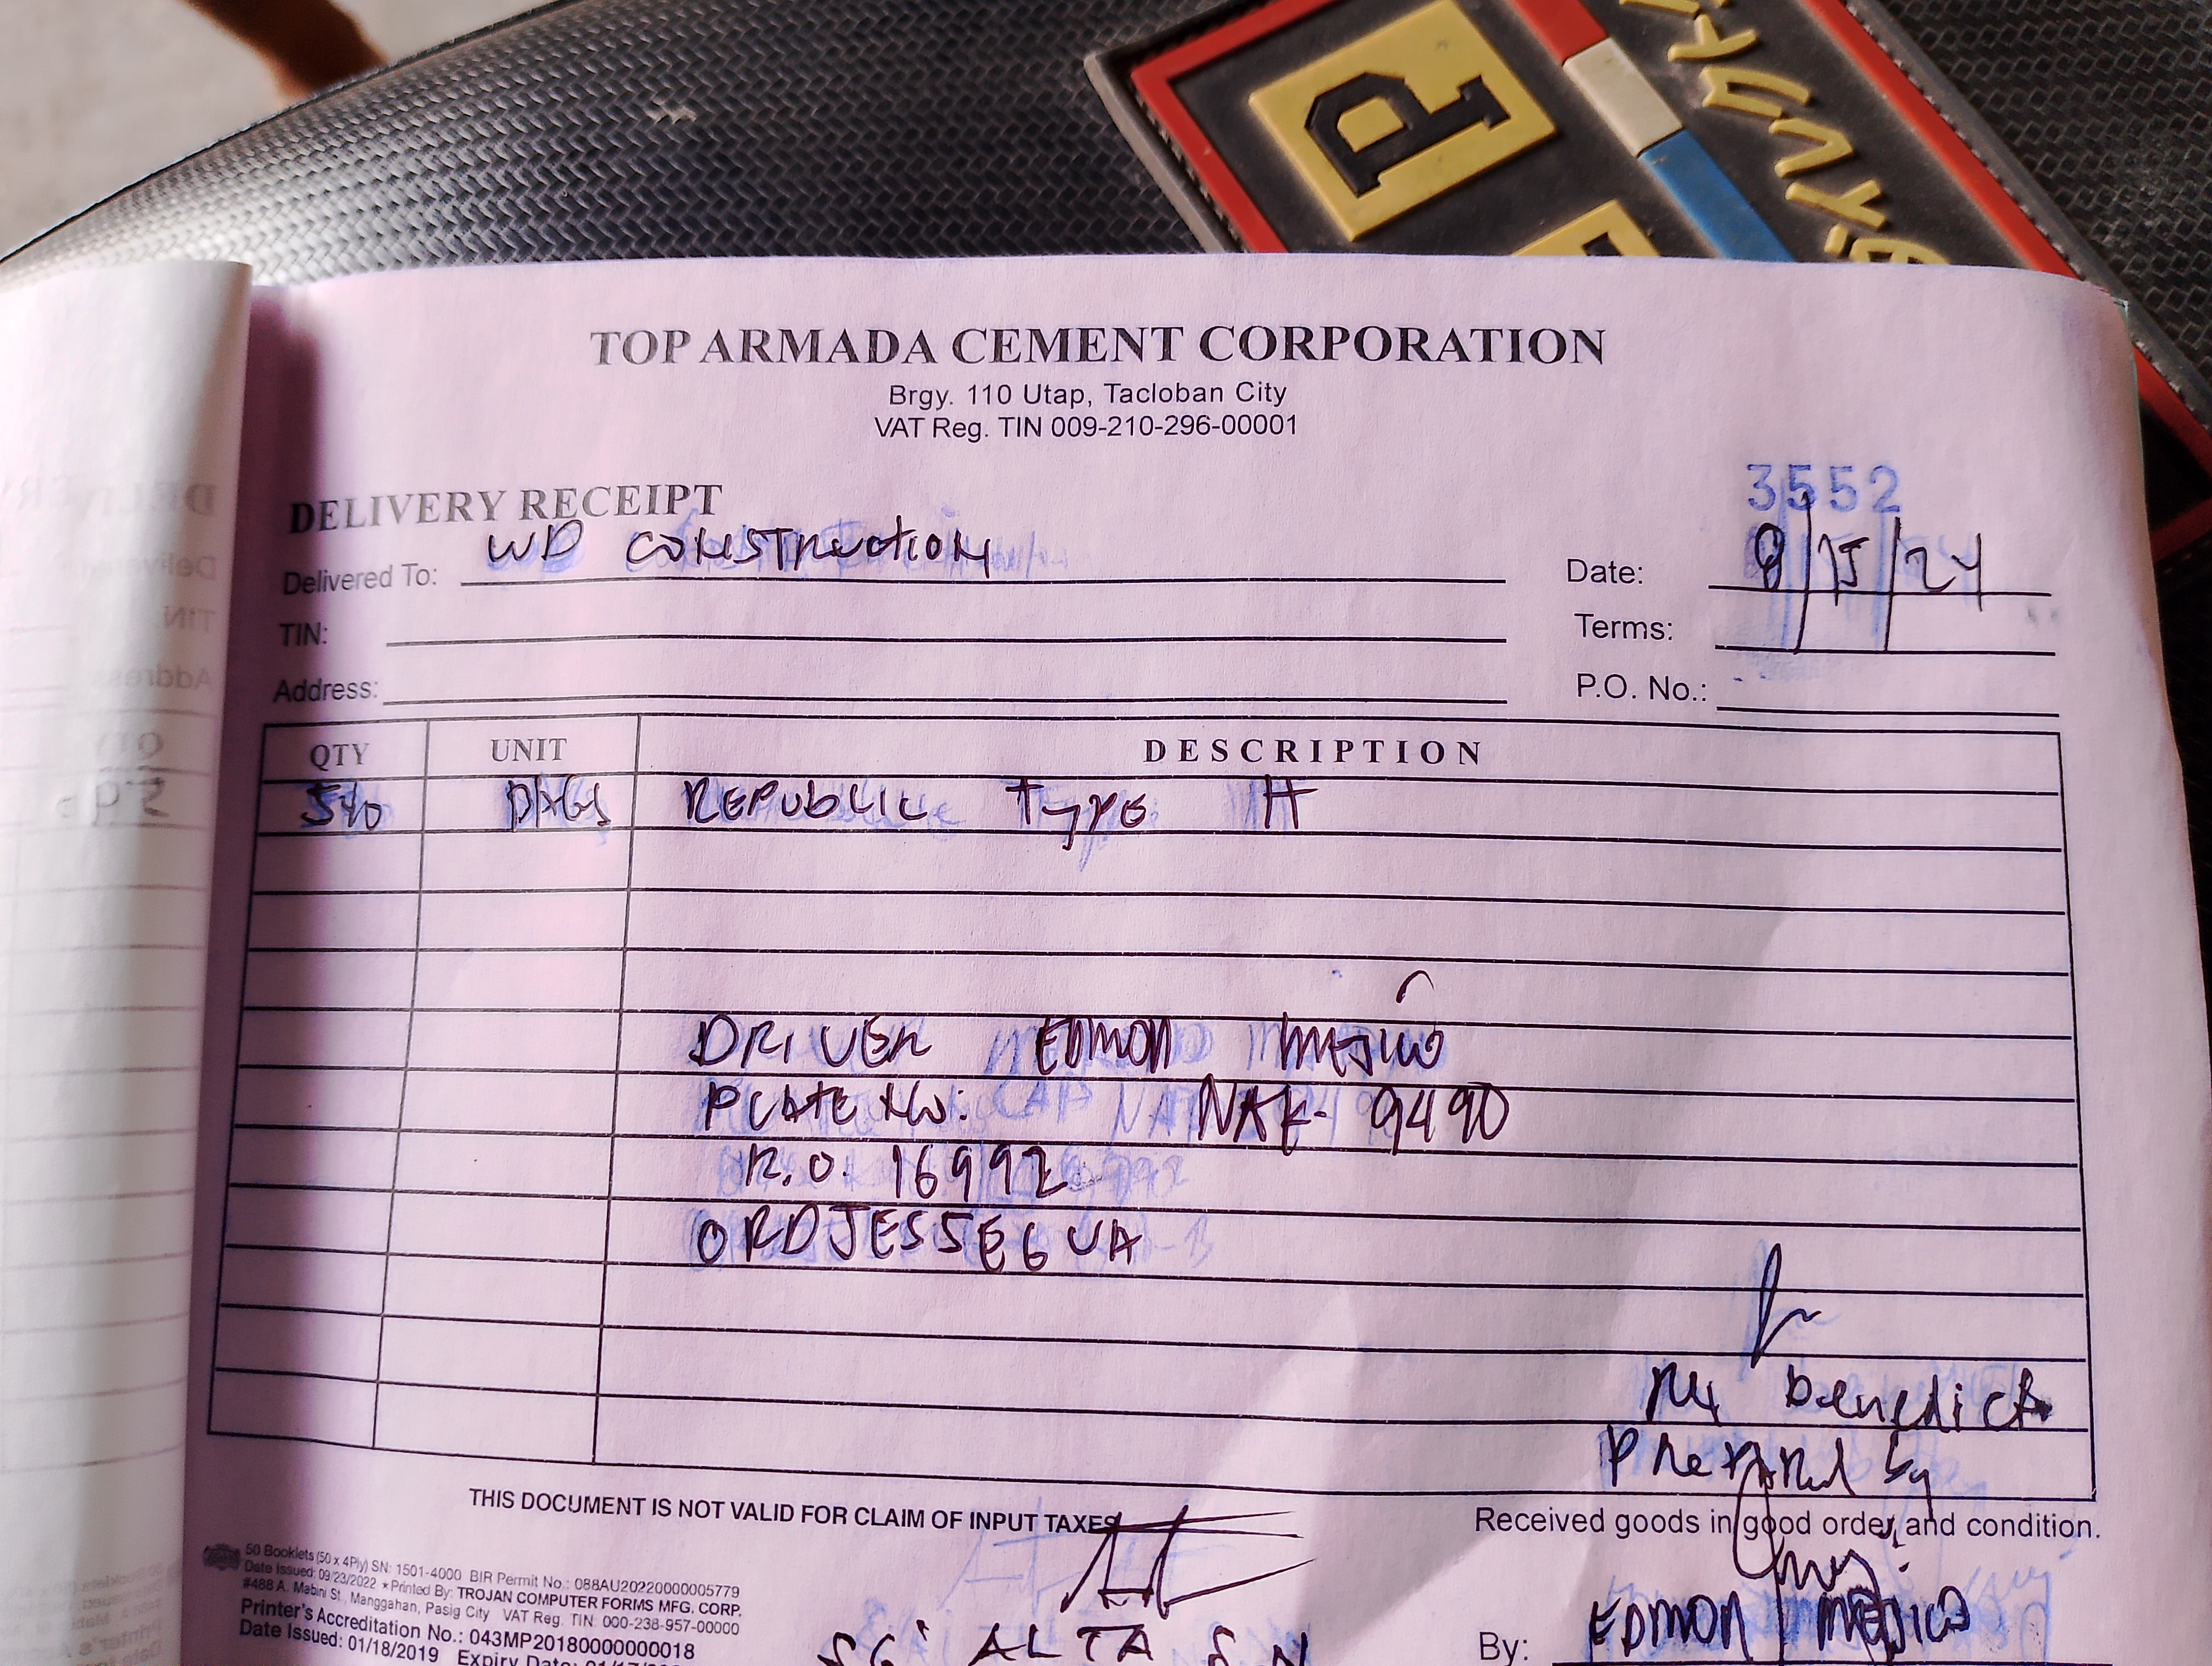 P
TOP ARMADA CEMENT CORPORATION
Brgy. 110 Utap, Tacloban City
VAT Reg. TIN 009-210-296-00001
3552
DELIVERY RECEIPT
Delivered To: WD CONSTRUCTION
Date: 8/15/24
TIN:
Terms:
Address:
P.O. No.:
QTY UNIT DESCRIPTION
540 BAGS REPUBLIC TYPE
DRIVER EDMON MEJICO
PLATE NO: NAK-9490
R.O. 16992
ORDJESSEGUA
benedict
Prepared by
THIS DOCUMENT IS NOT VALID FOR CLAIM OF INPUT TAXES
Received goods in good order and condition.
50 Booklets (50 x 4Ply) SN: 1501-4000 BIR Permit No.: 088AU20220000005779
Date Issued: 09/23/2022 ★Printed By: TROJAN COMPUTER FORMS MFG. CORP.
#488 A. Mabini St., Manggahan, Pasig City VAT Reg. TIN: 000-238-957-00000
Printer's Accreditation No.: 043MP20180000000018
Date Issued: 01/18/2019 Expiry Date:
ALTA
By: EDMON MEJICO